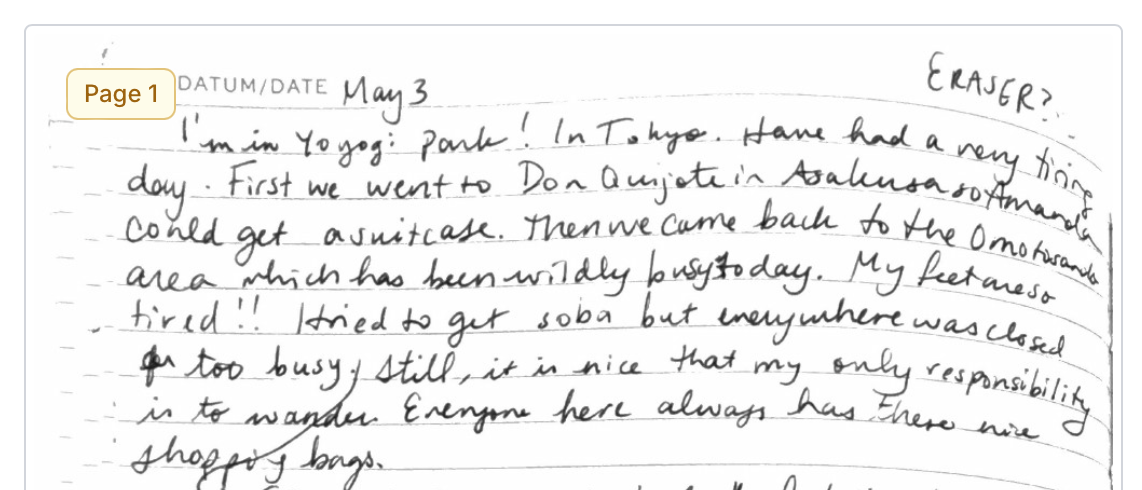 Page 1
DATUM/DATE May 3
ERASER?
I'm in Yoyogi Park! In Tokyo. Have had a very tiring
day. First we went to Don Quijote in Asakusa so Amanda
could get a suitcase. Then we came back to the Omotosando
area which has been wildly busy today. My feet are so
tired!! I tried to get soba but everywhere was closed
or too busy; still, it is nice that my only responsibility
is to wander. Everyone here always has these nice
shopping bags.